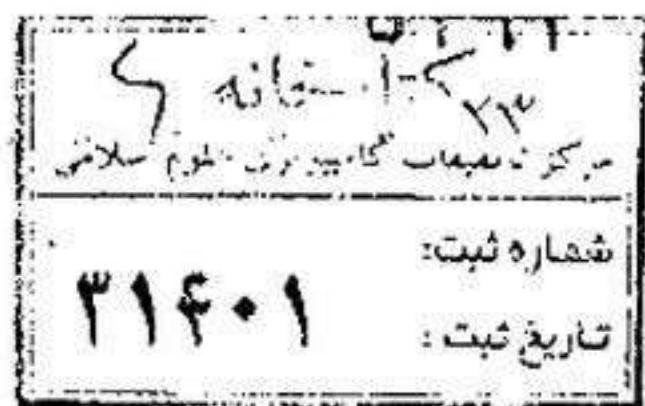 کتابخانه
مرکز تحقیقات کامپیوتری علوم اسلامی
شماره ثبت:
۳۱۴۰۱
تاریخ ثبت :